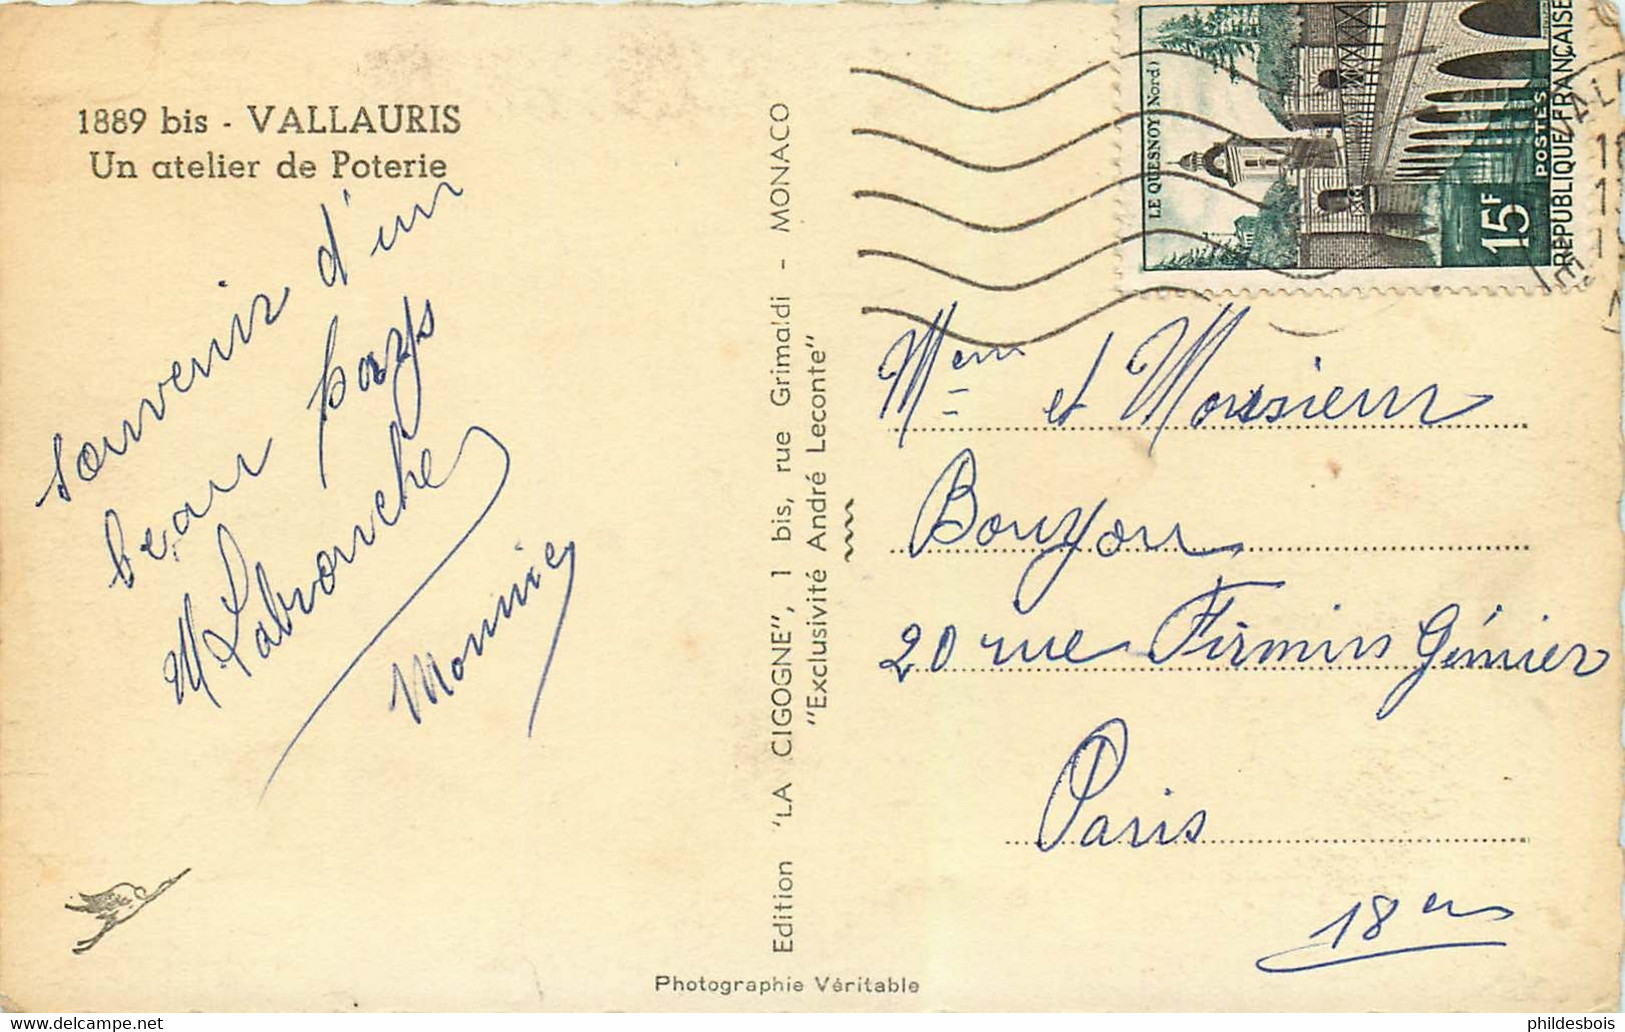 1889 bis - VALLAURIS
Un atelier de Poterie
souvenir d'un
beau pays
M Labrouche
Monnie
Edition "LA CIGOGNE", 1 bis, rue Grimaldi - MONACO
"Exclusivité André Leconte"
Photographie Véritable
LE QUESNOY (Nord)
15F
POSTES
REPUBLIQUE FRANÇAISE
Mem et Monsieur
Bouyou
20 rue Firmin Gémier
Paris
18em
phildesbois